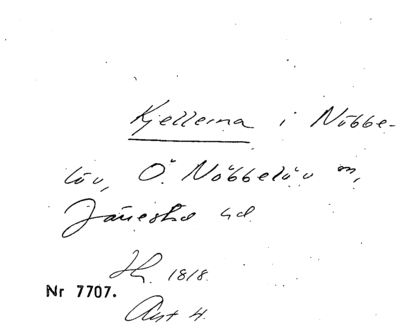 Kjellerna i Nöbbe-
löv, Ö. Nöbbelöv sn,
Järrestad hd
Hh. 1818.
Nr 7707.
Akt 4.